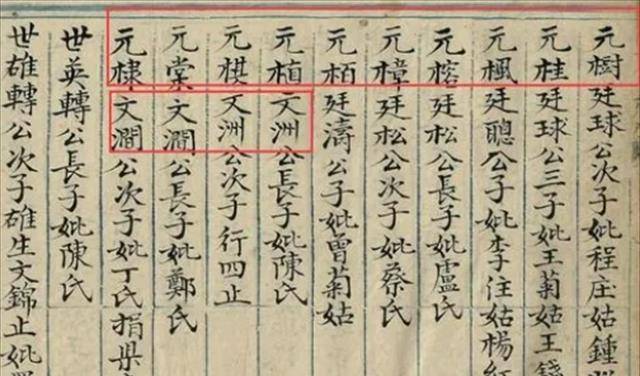 元樹廷球公次子妣程庄姑鍾
元桂廷球公三子妣王菊姑王錢
元楓廷聰公子妣李注姑楊紅
元榕廷松公長子妣盧氏
元樟廷松公次子妣蔡氏
元栢廷濤公子妣曾菊姑
元植文洲公長子妣陳氏
元棋文洲公次子行四止
元棠文澗公長子妣鄭氏
元棣文澗公次子妣丁氏指渠
世英轉公長子妣陳氏
世雄轉公次子雄生文錦止妣